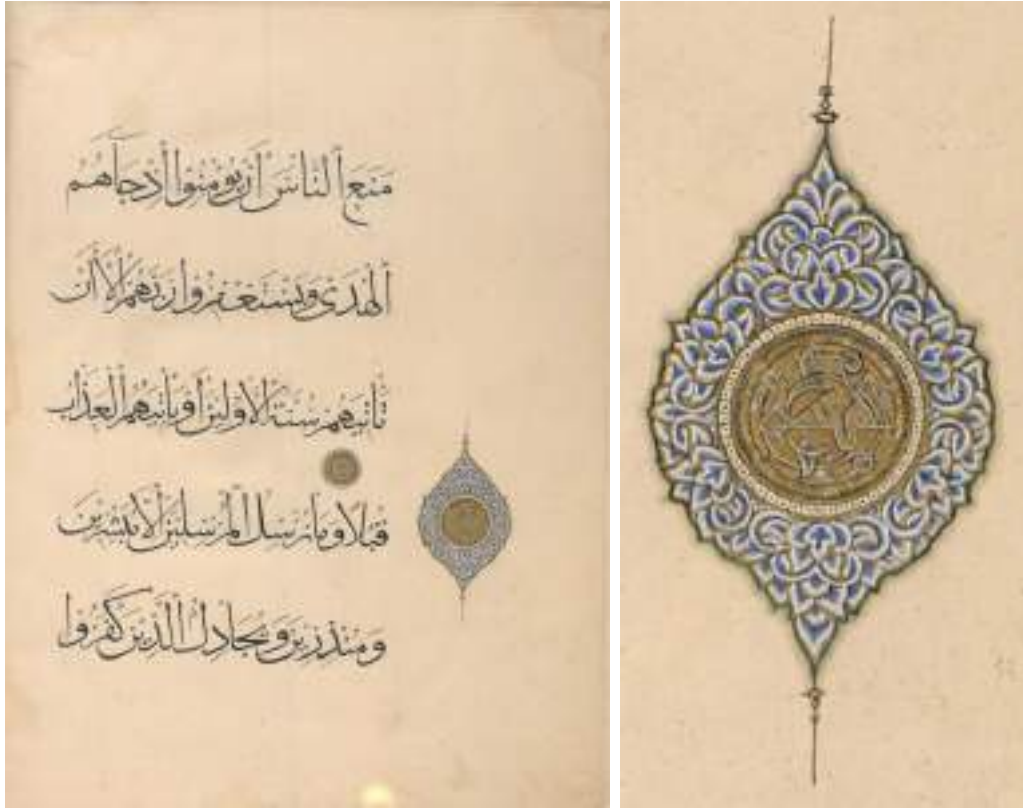 مَنَعَ ٱلنَّاسَ أَن يُؤْمِنُوا أِذْ جَآءَهُمُ
ٱلْهُدَىٰ وَيَسْتَغْفِرُوا رَبَّهُمْ إِلَّا أَن
تَأْتِيَهُمْ سُنَّةُ ٱلْأَوَّلِينَ أَوْ يَأْتِيَهُمُ ٱلْعَذَابُ
قُبُلًا وَمَا نُرْسِلُ ٱلْمُرْسَلِينَ إِلَّا مُبَشِّرِينَ
وَمُنْذِرِينَ وَيُجَادِلُ ٱلَّذِينَ كَفَرُوا